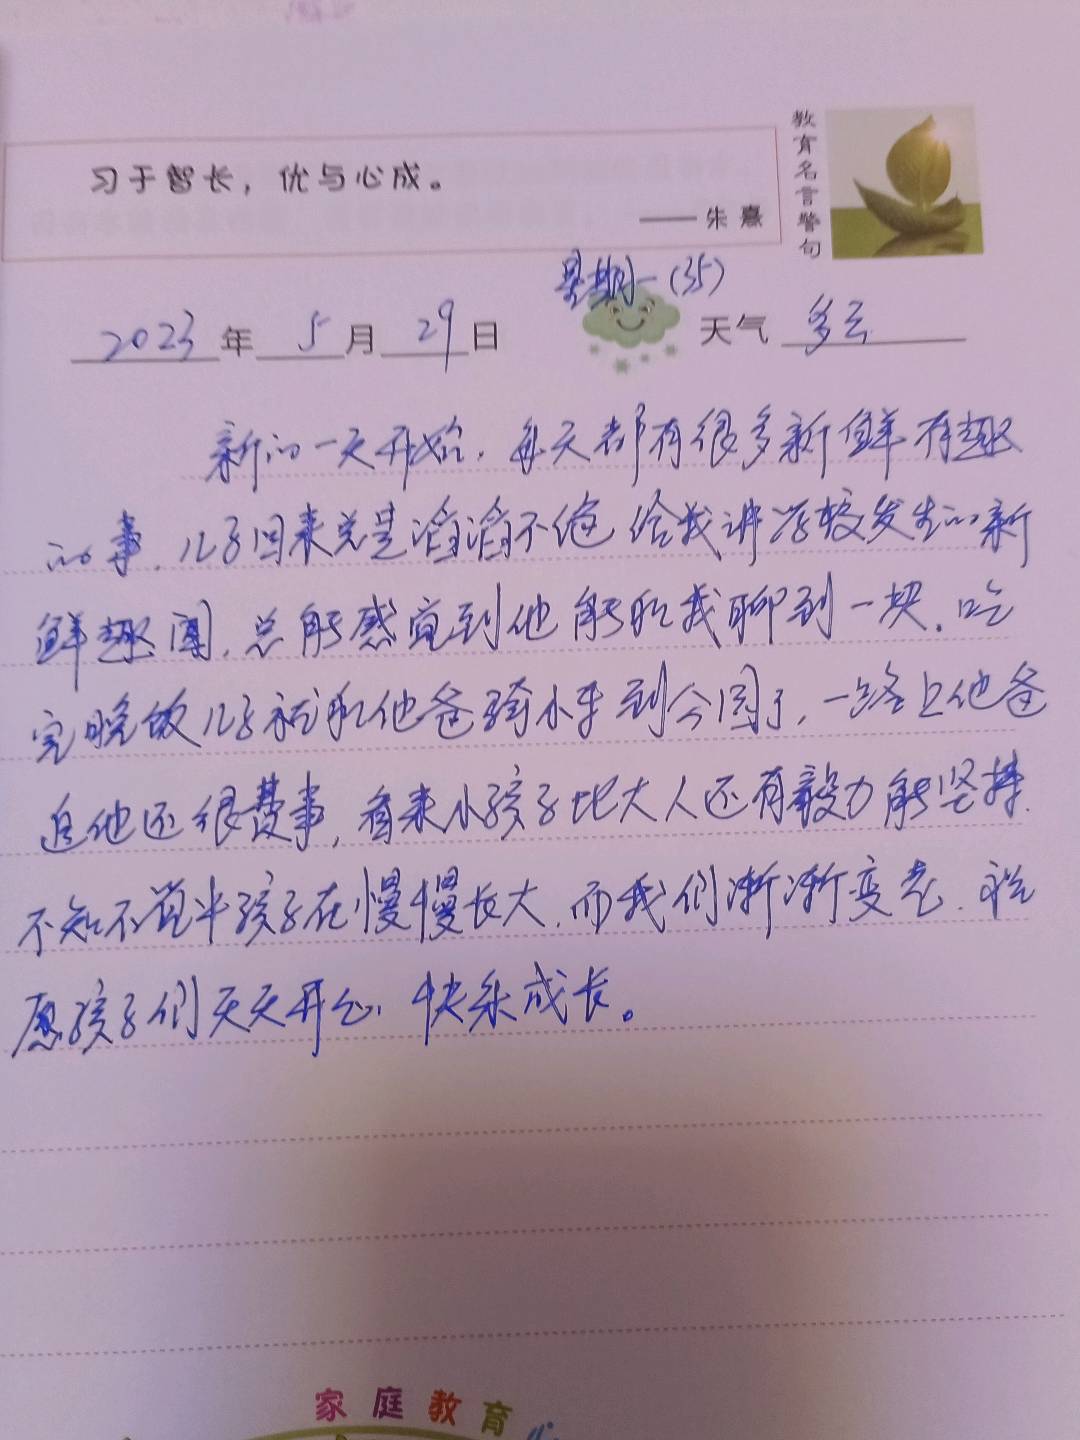 习于智长，优与心成。
—— 朱熹
教育名言警句
星期一(35)
2023年 5月 29日 天气 多云
新的一天开始，每天都有很多新鲜有趣
的事，儿子回来总是滔滔不绝给我讲学校发生的新
鲜趣闻，总能感觉到他能和我聊到一块。吃
完晚饭儿子就和他爸骑小车到公园了，一路上他爸
追他还很费事，看来小孩子比大人还有毅力能坚持.
不知不觉中孩子在慢慢长大，而我们渐渐变老，祝
愿孩子们天天开心，快乐成长。
家庭教育